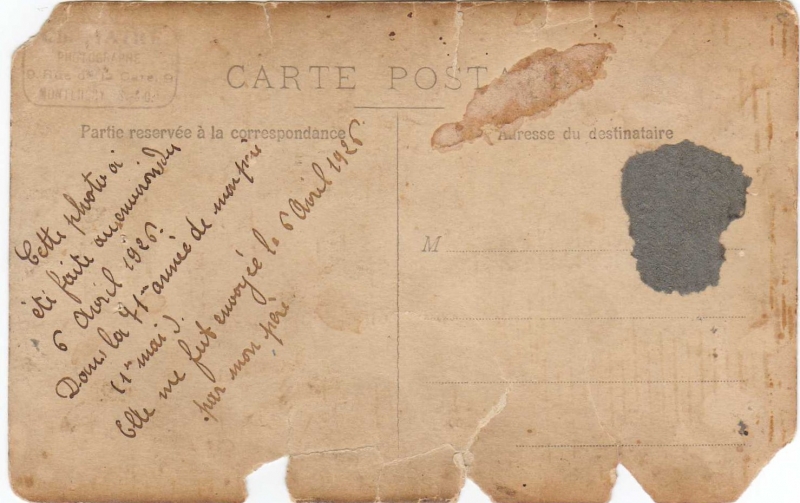 PHOTOGRAPHE
9, Rue de la Gare, 9
CARTE POST
Partie reservée à la correspondance
Adresse du destinataire
M
Cette photo a
été faite aux environs du
6 Avril 1926.
Dans la 71me année de mon père
(1er mai).
Elle me fut envoyée le 6 Avril 1926
par mon père